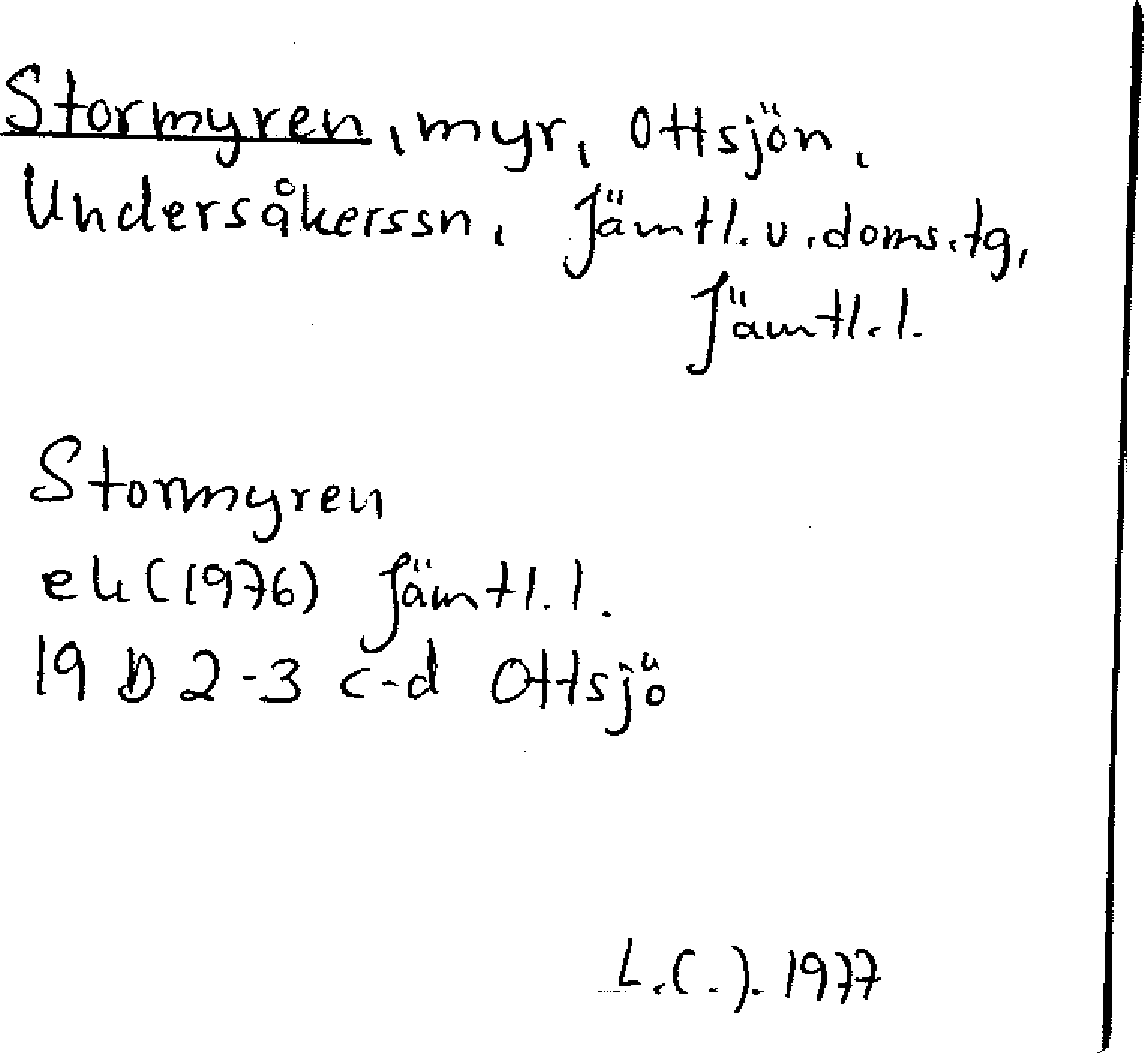 Stormyren, myr, Ottsjön,
Undersåkerssn, Jämtl. v. doms. tg,
Jämtl. l.
Stormyren
ek (1976) Jämtl. l.
19 D 2-3 c-d Ottsjö
L. C. J. 1977